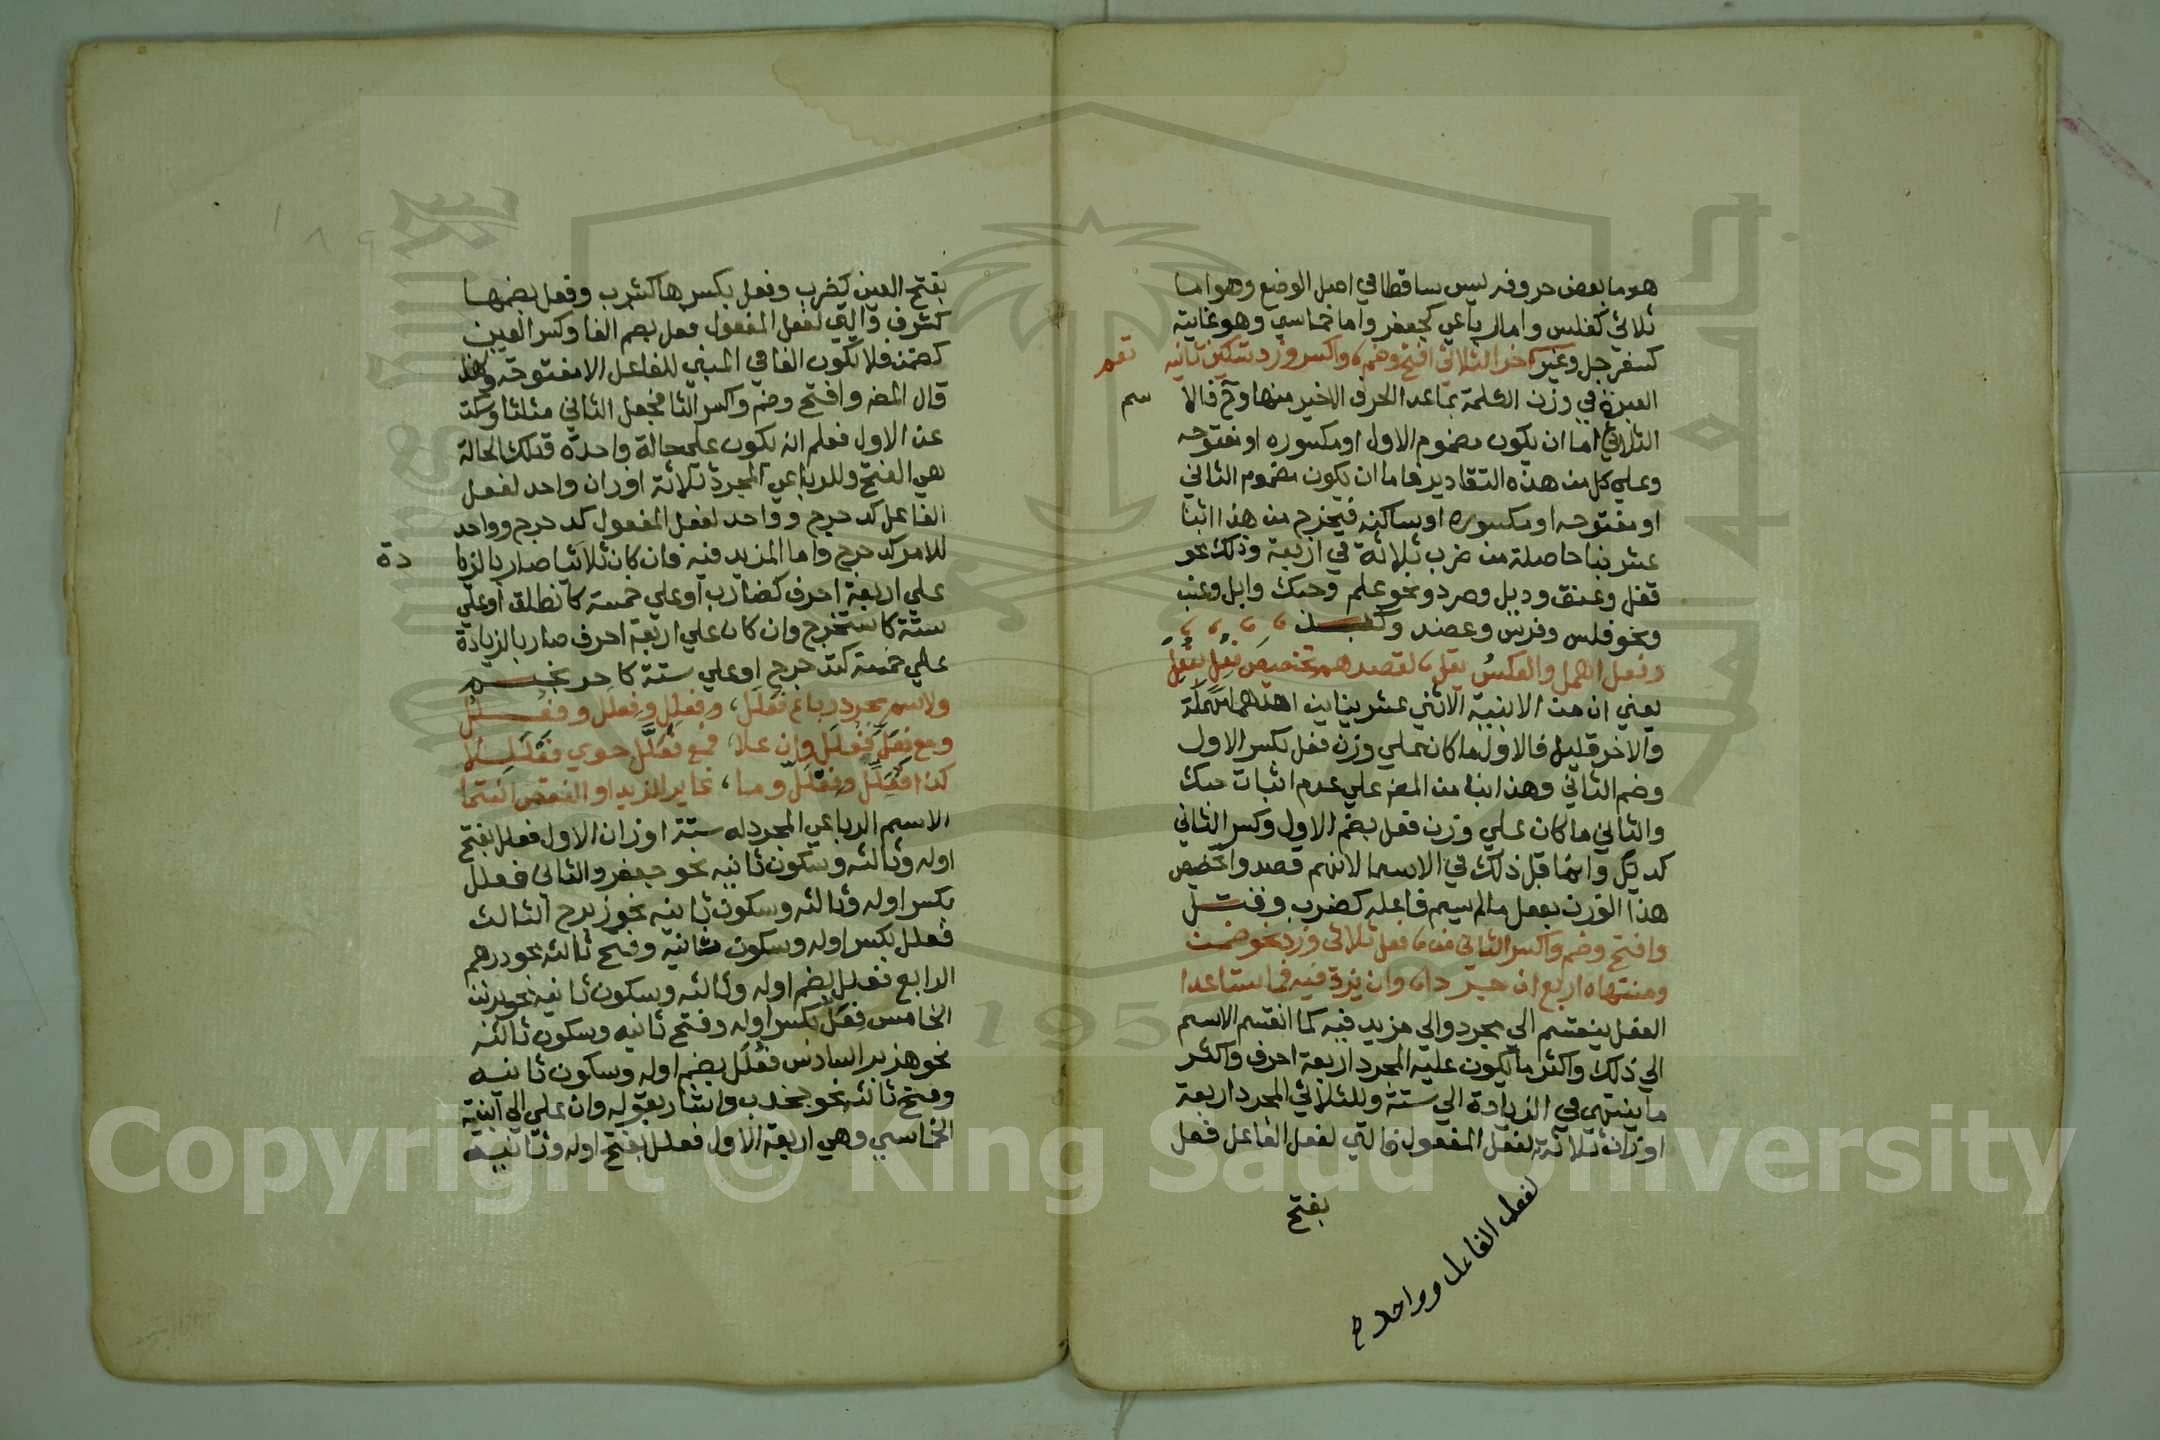 هو ما بعض حروفه ليس ساقطا في اصل الوضع وهو اما
ثلاثي كفلس واما رباعي كجعفر واما خماسي وهو غايته
كسفرجل وغير اخر الثلاثي افتح وضم، واكسر وزد تسكين ثانيه
تعم
العبرة في وزن الكلمة بما عدا الحرف الاخير منها وح فالا
سم
الثلاثي اما ان يكون مضموم الاول او مكسوره او مفتوحه
وعلي كل من هذه التقادير فاما ان يكون مضموم الثاني
او مفتوحه او مكسوره او ساكنه فيخرج من هذا اثنا
عشر بنا حاصلة من ضرب ثلاثة في اربعة وذلك نحو
قفل وعنق ودئل وصرد ونحو علم وحبك وابل وعنب
ونحو فلس وفرس وعضد وكبد
وفعل اهمل والعكس يقل، لقصدهم تخصيص فعل بفعل
يعني ان من الابنية الاثني عشر بنايين احدهما مهملة
والاخر قليل فالاول ما كان علي وزن فعل بكسر الاول
وضم الثاني وهذا بنا من المص علي عدم اثبات حبك
والثاني ما كان علي وزن فعل بضم الاول وكسر الثاني
كدئل وانما قل ذلك في الاسما لانهم قصدوا تخصيص
هذا الوزن بفعل ما لم يسم فاعله كضرب وقتل
وافتح وضم واكسر الثاني من، فعل ثلاثي وزد نحو ضمن
ومنتهاه اربع ان جردا، وان يزد فيه فما ستا عدا
الفعل ينقسم الي مجرد والي مزيد فيه كما انقسم الاسم
الي ذلك واكثر ما يكون عليه المجرد اربعة احرف واكثر
ما ينتهي في الزيادة الي ستة وللثلاثي المجرد اربعة
اوزان ثلاثة لفعل المفعول فالتي لفعل الفاعل فعل
لفعل الفاعل وواحد صح
بفتح
بفتح العين كضرب وفعل بكسرها كشرب وفعل بضمها
كشرف والتي لفعل المفعول فعل بضم الفا وكسر العين
كضمن فلا تكون الفا في المبني للفاعل الا مفتوحة ولهذا
قال المص وافتح وضم واكسر الثا فجعل الثاني مثلثا وسكت
عن الاول فعلم انه يكون علي حالة واحدة وتلك الحالة
هي الفتح وللرباعي المجرد ثلاثة اوزان واحد لفعل
الفاعل كدحرج وواحد لفعل المفعول كدحرج وواحد
للامر كدحرج واما المزيد فيه فان كان ثلاثيا صار بالزيا
دة
علي اربعة احرف كضارب او علي خمسة كانطلق او علي
ستة كاستخرج وان كان علي اربعة احرف صار بالزيادة
علي خمسة كتدحرج او علي ستة كاحرنجم
ولاسم مجرد رباع فعلل، وفعلل وفعلل وفعلل
ومع فعل فعلل وان علا، فمع فعلل حوي فعلللا
كذا فعلل وفعلل وما، غاير للزيد او النقص انتما
الاسم الرباعي المجرد له ستة اوزان الاول فعلل بفتح
اوله وثالثه وسكون ثانيه نحو جعفر والثاني فعلل
بكسر اوله وثالثه وسكون ثانيه نحو زبرج الثالث
فعلل بكسر اوله وسكون ثانيه وفتح ثالثه نحو درهم
الرابع فعلل بضم اوله وثالثه وسكون ثانيه نحو برثن
الخامس فعل بكسر اوله وفتح ثانيه وسكون ثالثه
نحو هزبر السادس فعلل بضم اوله وسكون ثانيه
وفتح ثالثه نحو جخدب واشار بقوله وان علي الي ابنية
الخماسي وهي اربعة الاول فعلل بفتح اوله وثانيه
Copyright © King Saud University
195